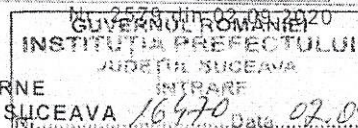 Nr. 2579 din 02.09.2020
GUVERNUL ROMÂNIEI
INSTITUȚIA PREFECTULUI
JUDEȚUL SUCEAVA
RNE INTRARE
SUCEAVA 16470 Data 02.0